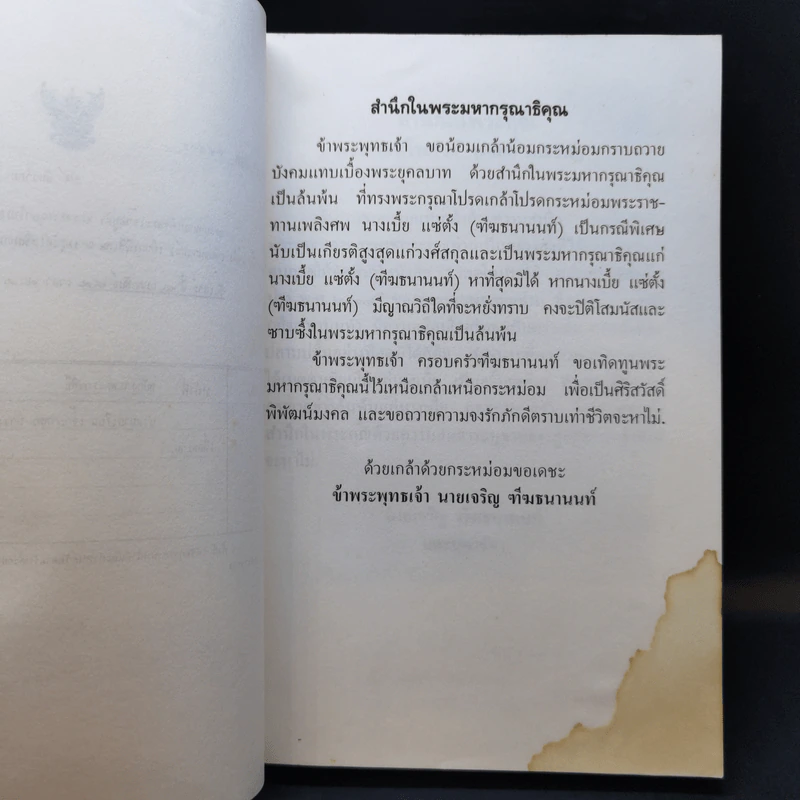 สำนึกในพระมหากรุณาธิคุณ
ข้าพระพุทธเจ้า ขอน้อมเกล้าน้อมกระหม่อมกราบถวาย
บังคมแทบเบื้องพระยุคลบาท ด้วยสำนึกในพระมหากรุณาธิคุณ
เป็นล้นพ้น ที่ทรงพระกรุณาโปรดเกล้าโปรดกระหม่อมพระราช-
ทานเพลิงศพ นางเบี้ย แซ่ตั้ง (ฑีฆธนานนท์) เป็นกรณีพิเศษ
นับเป็นเกียรติสูงสุดแก่วงศ์สกุลและเป็นพระมหากรุณาธิคุณแก่
นางเบี้ย แซ่ตั้ง (ฑีฆธนานนท์) หาที่สุดมิได้ หากนางเบี้ย แซ่ตั้ง
(ฑีฆธนานนท์) มีญาณวิถีใดที่จะหยั่งทราบ คงจะปิติโสมนัสและ
ซาบซึ้งในพระมหากรุณาธิคุณเป็นล้นพ้น
ข้าพระพุทธเจ้า ครอบครัวฑีฆธนานนท์ ขอเทิดทูนพระ
มหากรุณาธิคุณนี้ไว้เหนือเกล้าเหนือกระหม่อม เพื่อเป็นศิริสวัสดิ์
พิพัฒน์มงคล และขอถวายความจงรักภักดีตราบเท่าชีวิตจะหาไม่.
ด้วยเกล้าด้วยกระหม่อมขอเดชะ
ข้าพระพุทธเจ้า นายเจริญ ฑีฆธนานนท์